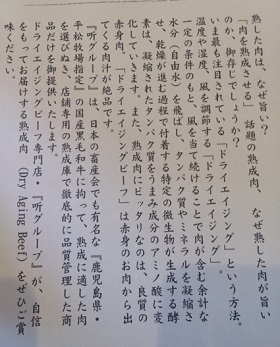 熟した肉は、なぜ旨い？
「肉を熟成させる」話題の熟成肉、　なぜ熟した肉が旨い
のか、御存じでしょうか？
いま最も注目されている「ドライエイジング」という方法。
温度や湿度、風を調節する「ドライエイジング」。
一定の条件のもと、風を当て続けることで肉が含む余計な
水分（自由水）を飛ばし、タンパク質やミネラルを凝縮さ
せ、乾燥が進む過程で付着する特定の微生物が生成する酵
素は、凝縮されたタンパク質をうまみ成分のアミノ酸に変
化していきます。また、熟成肉にピッタリなのは、良質の
赤身肉。「ドライエイジングビーフ」は赤身のお肉から出
てくる肉汁が絶品です。
『听グループ』は、日本の畜産会でも有名な『鹿児島県・
平松牧場指定』の国産黒毛和牛に拘って、熟成に適した肉
を選びぬき、店舗専用の熟成庫で徹底的に品質管理した商
品だけを御提供いたします
ドライエイジングビーフ専門店・『听グループ』が、自信
をもってお届けする熟成肉　(Dry Aging Beef) をぜひご賞
味ください。